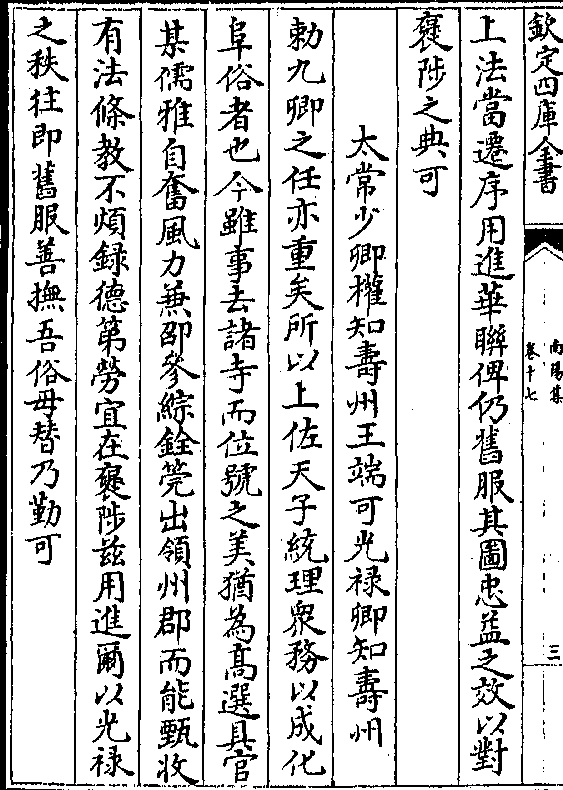 欽定四庫全書
南陽集
卷十七
三
上法當遷序用進華聯俾仍舊服其圖忠益之效以對
襃陟之典可
太常少卿權知壽州王端可光禄卿知壽州
勅九卿之任亦重矣所以上佐天子統理衆務以成化
阜俗者也今雖事去諸寺而位號之美猶為髙選具官
某儒雅自奮風力兼卲參綜銓筦出領州郡而能甄收
有法條教不煩録德第勞宜在襃陟兹用進爾以光禄
之秩往即舊服善撫吾俗毋替乃勤可